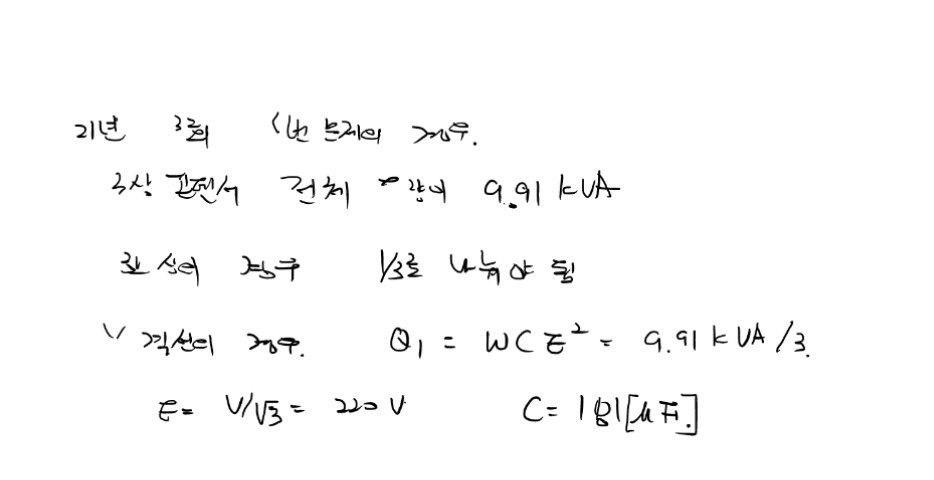 21년 3회 1번 문제의 경우.
3상 콘덴서 전체 용량이 9.91 kVA
한 상의 경우 1/3로 나눠야 됨
Y 결선의 경우. Q₁ = WCE² = 9.91 kVA/3.
E = V/√3 = 220 V C = 181[μF.]